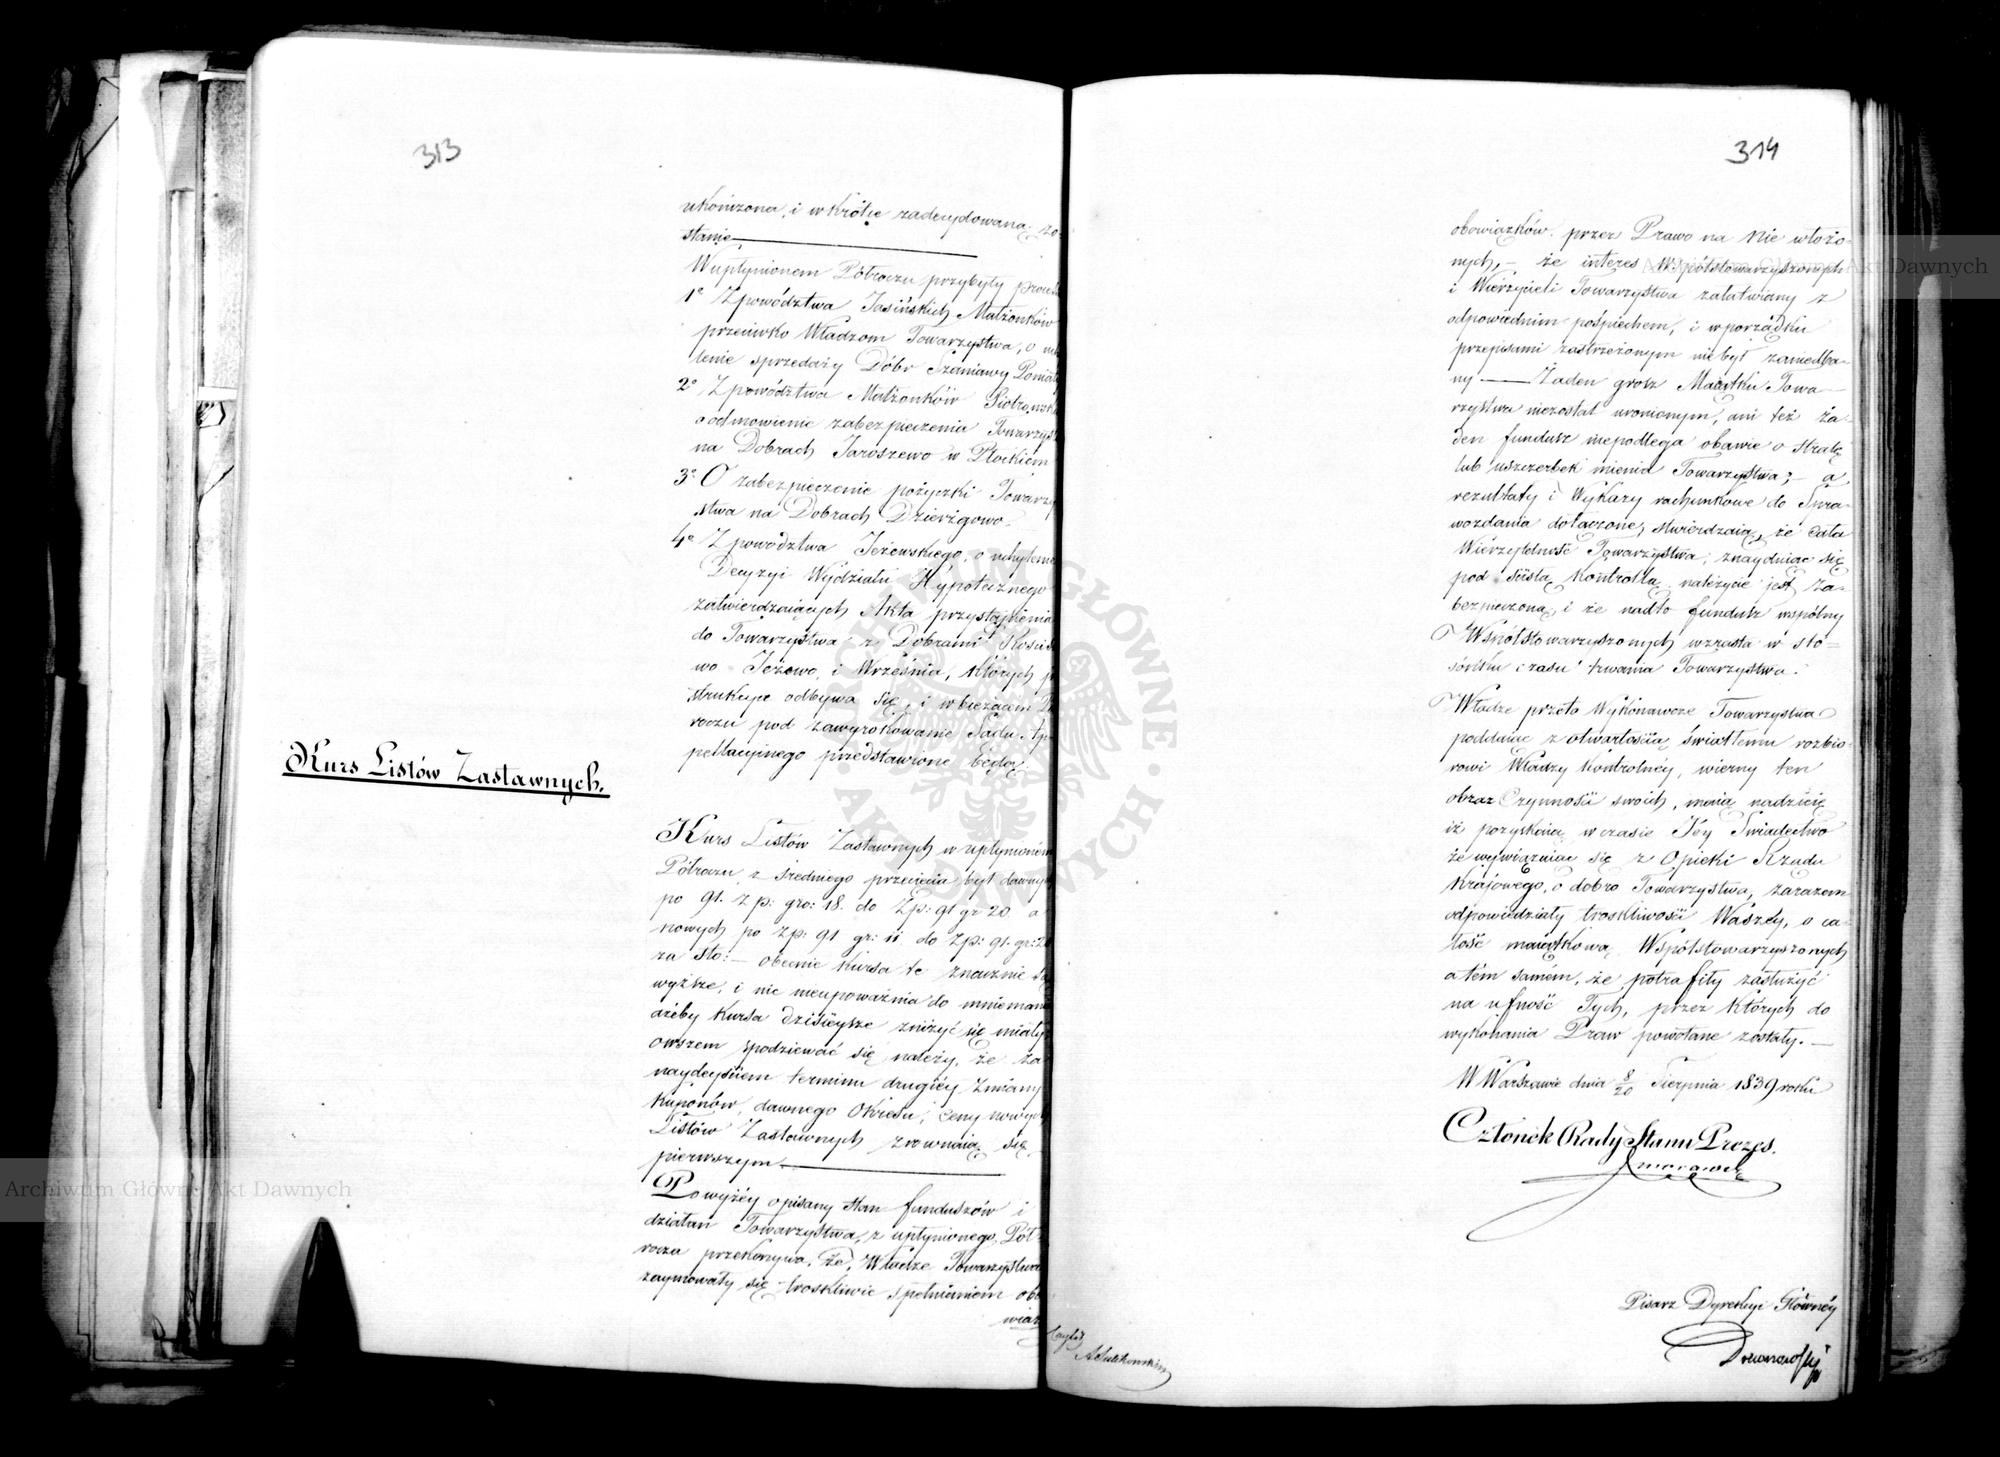 313
ukończona, i wkrótce zadecydowaną zo-
stanie
W upłynionem Półroczu przybyły
1o Z powództwa Jasińskich Małżonków
przeciwko Władzom Towarzystwa, o
lenie sprzedaży Dóbr Szaniawy
2o Z powództwa Małżonków
o odmowienie zabezpieczenia
na Dobrach Jaroszewo w Płockiem
3o O zabezpieczenie pożyczki Towarzy
stwa na Dobrach Dzierżgowo
4o Z powództwa Jeżewskiego, o uchylenie
Decyzyi Wydziału Hypotecznego
zatwierdzaiących Akta przystąpienia
do Towarzystwa z Dobrami
wo Jeżewo, i Września, których
strukcye odbywa się, i w bieżącem
roczu pod zawyrokowanie Sądu Ap
pellacyjnego przedstawione będą.
Kurs Listów Zastawnych.
Kurs Listów Zastawnych w upłynionem
Półroczu z średniego przecięcia był dawnych
po 91. zp: gro: 18. do Zp: 91 gr 20. a
nowych po zp: 91 gr: 11 do zp: 91. gr:
za sto: — obecnie kursa te znacznie są
wyższe, i nic nieupoważnia do mniemania
ażeby kursa dzisieysze zniżyć się miały
owszem spodziewać się należy, że za
nadeyściem terminu drugiéy zmiany
kuponów, dawnego Okresu, ceny nowych
Listów Zastawnych zrównaią się
pierwszym.
Powyżéy opisany stan funduszów i
działań Towarzystwa, z upłynionego Pół-
rocza przekonywa, że Władze Towarzystwa
zaymowały się troskliwie spełnianiem obo
wiąz
314
obowiązków przez Prawo na Nie włożo-
nych, — że interes Współstowarzyszonych
i Wierzycieli Towarzystwa załatwiany z
odpowiednim pośpiechem, i w porządku
przepisami zastrzeżonym niebył zaniedba-
ny — Żaden grosz Maiątku Towa-
rzystwa niezostał uronionym, ani też ża-
den fundusz niepodlega obawie o stratę
lub uszczerbek mienia Towarzystwa; — a
rezultaty i Wykazy rachunkowe do Spra-
wozdania dołączone, stwierdzaią, że cała
Wierzytelność Towarzystwa, znayduiąc się
pod ścisłą kontrollą należycie jest za-
bezpieczoną, i że nadto fundusz wspólny
Współstowarzyszonych wzrasta w sto-
sónku czasu trwania Towarzystwa.
Władze przeto Wykonawcze Towarzystwa
poddaiąc z otwartością światłemu rozbio-
rowi Władzy Kontrolnéy, wierny ten
obraz Czynności swoich, maią nadzieię
iż pozyskaią w czasie Jey Świadectwo
że wywiązuiąc się z Opieki Rządu
Krajowego, o dobro Towarzystwa, zarazem
odpowiedziały troskliwości Waszéy, o ca-
łość maiątkową Współstowarzyszonych
a tém samém, że potrafiły zasłużyć
na ufność Tych, przez których do
wykonania Praw powołane zostały. —
W Warszawie dnia 8/20 Sierpnia 1839 roku
Członek Rady Stanu Prezes.
Pisarz Dyrekcyi Głównéy
Drewnowski
Archiwum Główne Akt Dawnych
Archiwum Główne Akt Dawnych
ARCHIWUM GŁÓWNE AKT DAWNYCH